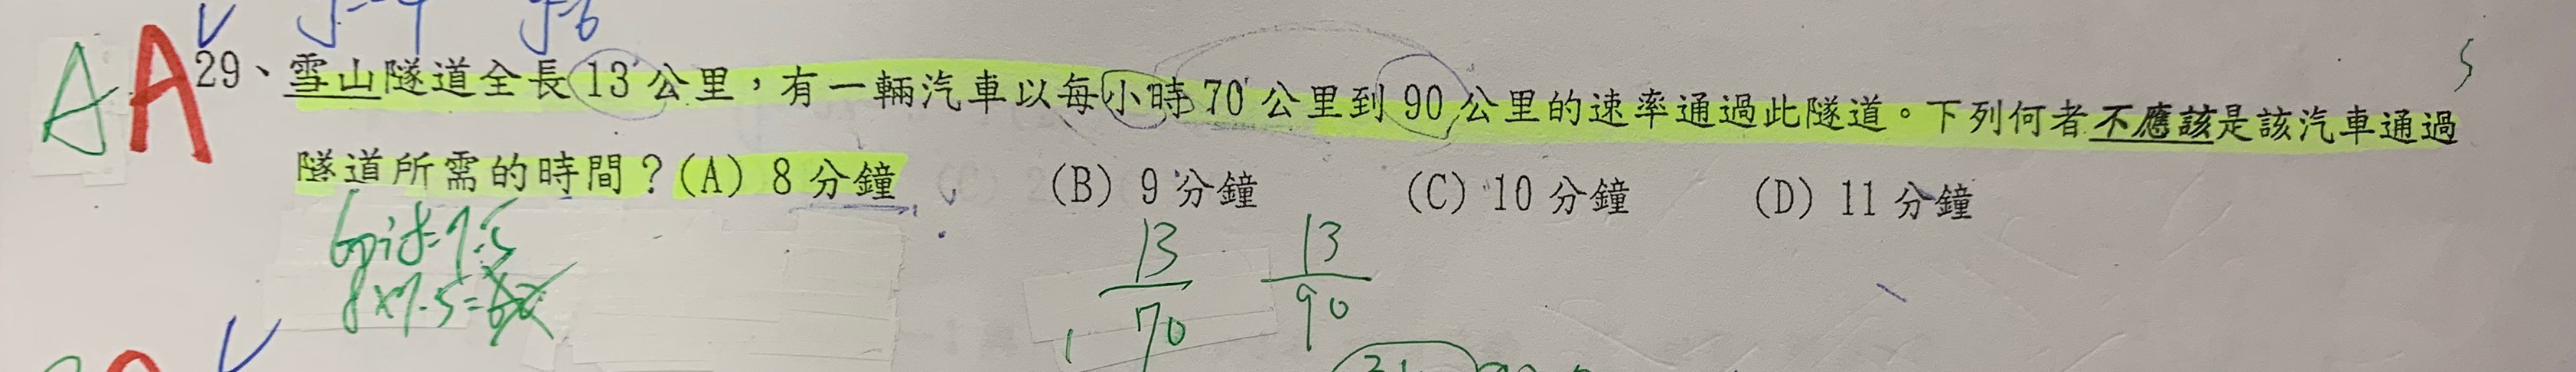 A A 29、雪山隧道全長 13 公里，有一輛汽車以每小時 70 公里到 90 公里的速率通過此隧道。下列何者不應該是該汽車通過
隧道所需的時間？(A) 8 分鐘 (B) 9 分鐘 (C) 10 分鐘 (D) 11 分鐘
8×7.5=
13 13
70 90